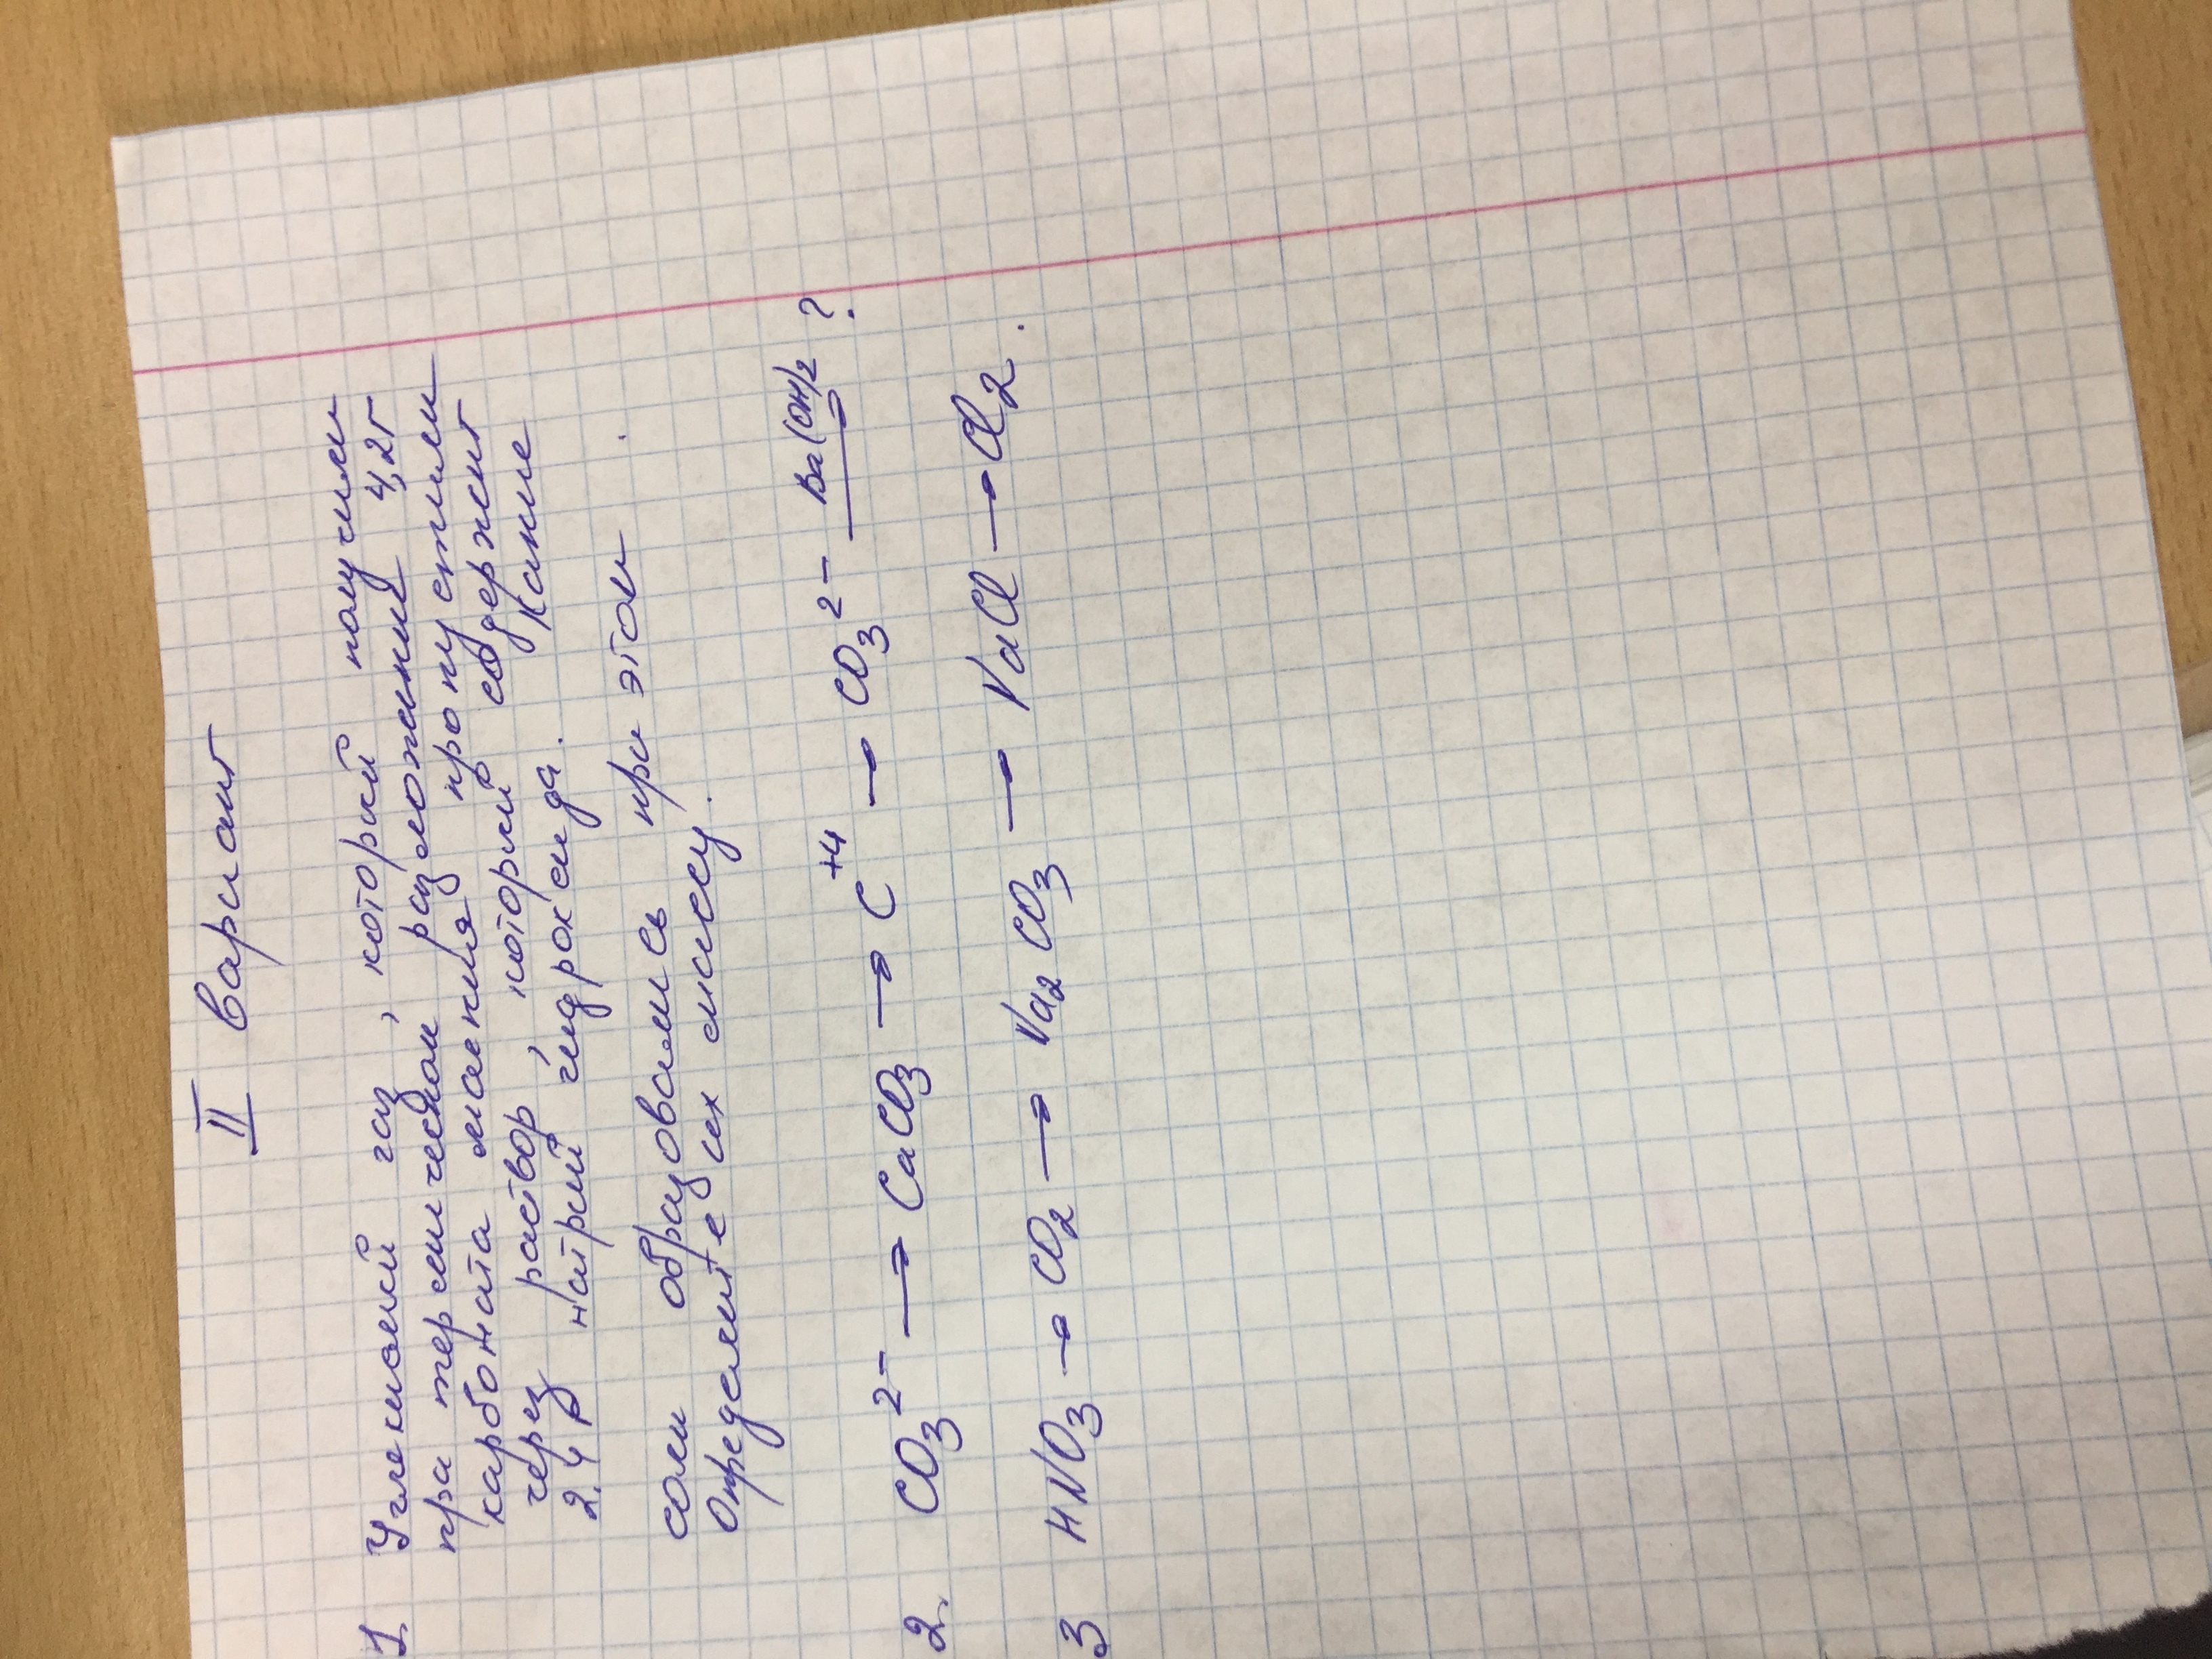 II вариант
1. Углекислый газ, который получили
при термическом разложении 4,2г
карбоната магния пропустили
через раствор, который содержит
2,4г натрий гидроксида. Какие
соли образовались при этом.
Определите их массу.
2. CO₃²⁻ → CaCO₃ → C⁺⁴ → CO₃²⁻ Ba(OH)₂→ ?
3 HNO₃ → CO₂ → Na₂CO₃ → NaCl → Cl₂.